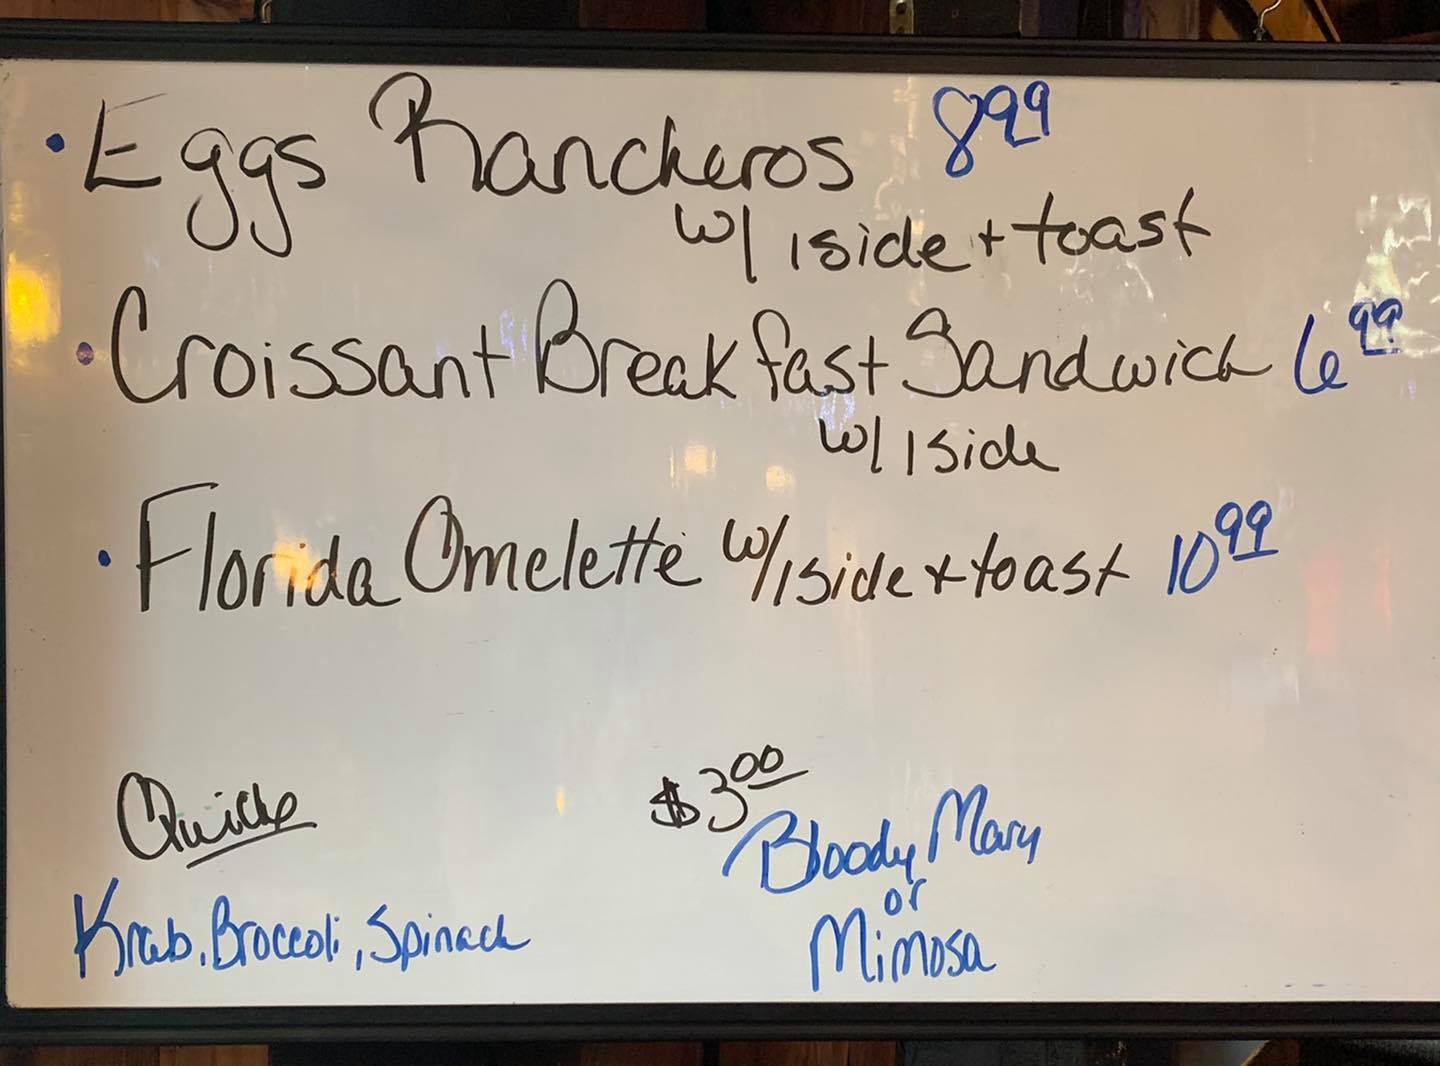 • Eggs Rancheros 8 99
w/ 1 side + toast
• Croissant Breakfast Sandwich 6 99
w/ 1 side
• Florida Omelette w/ 1 side + toast 10 99
Quiche
Krab, Broccoli, Spinach
$3 00
Bloody Mary
or
Mimosa